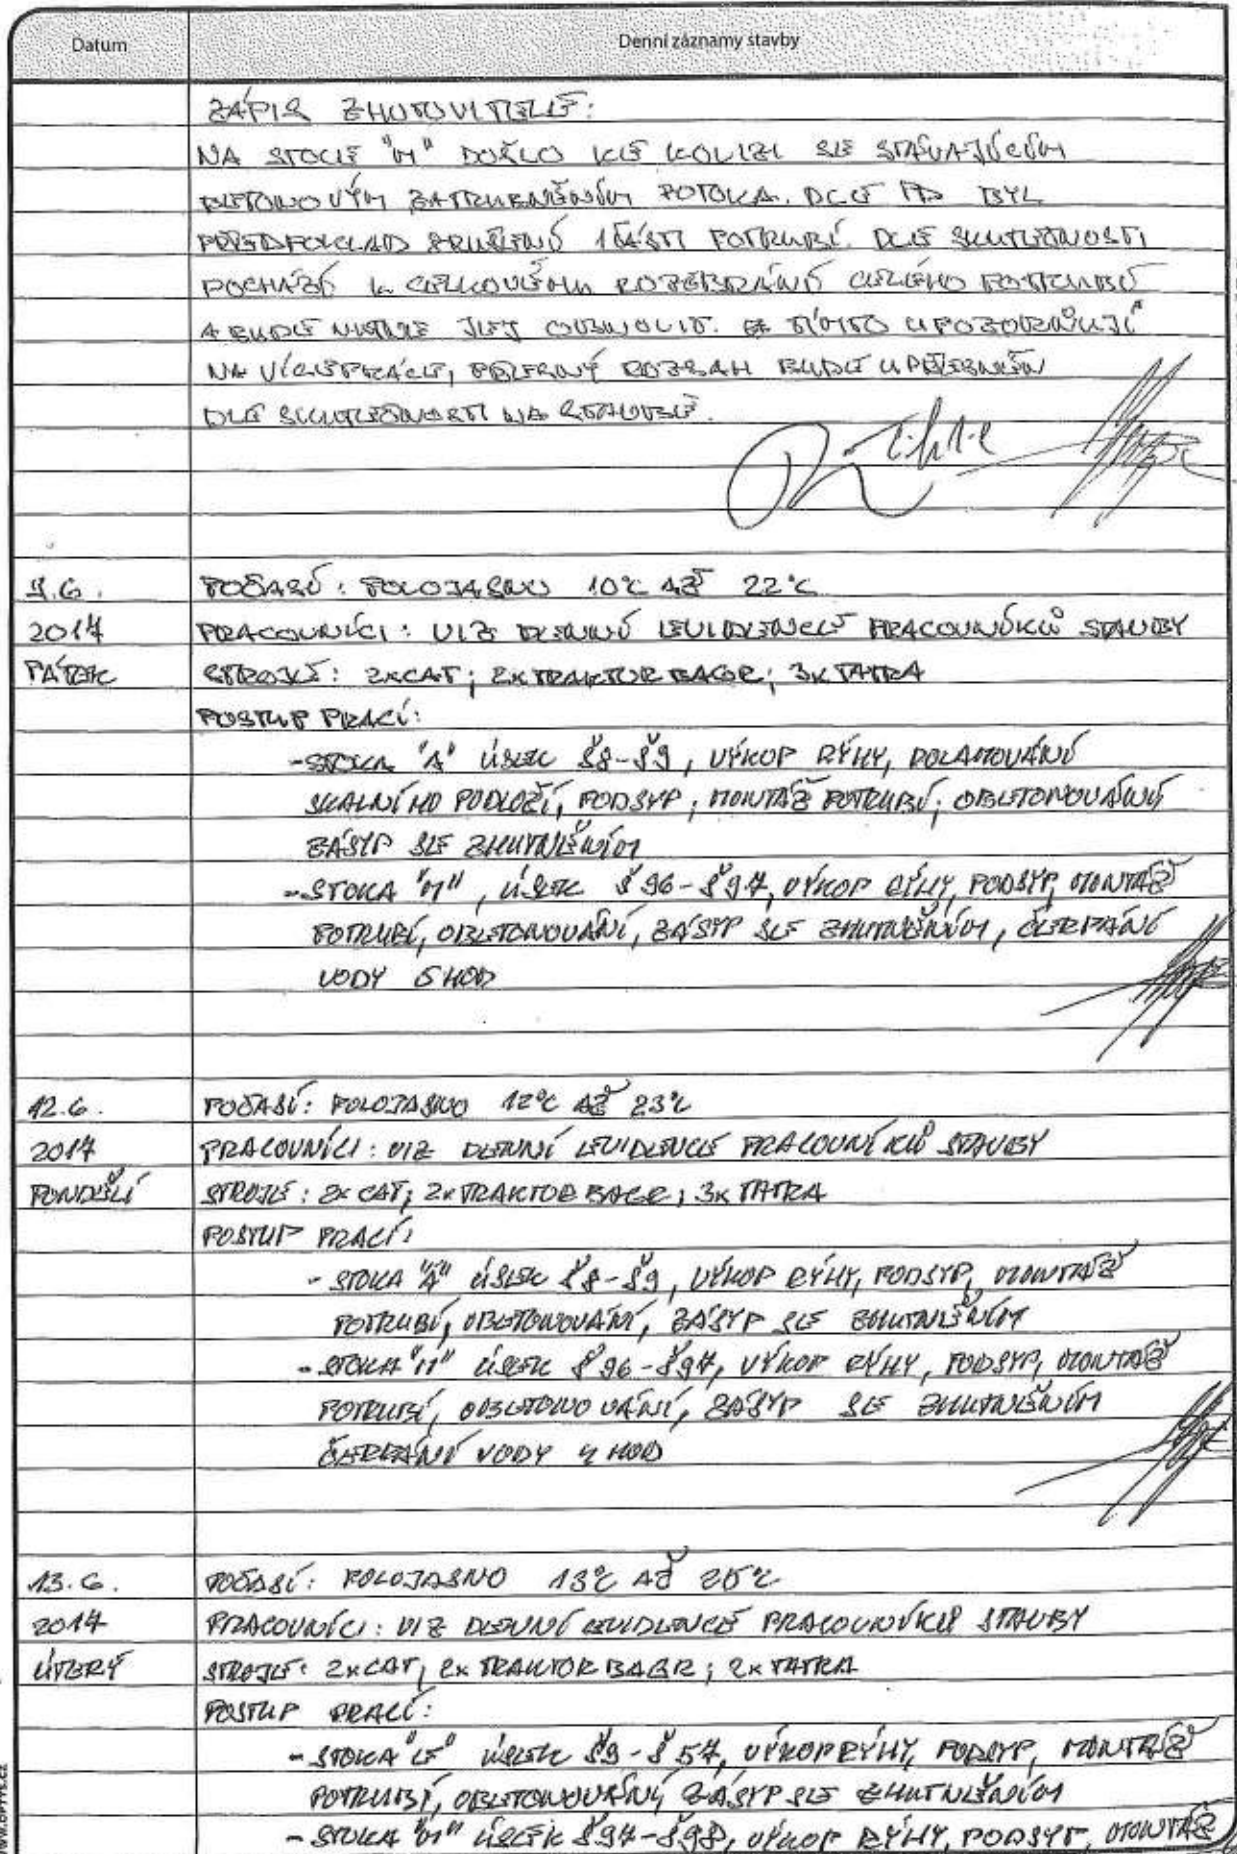 Datum
Denní záznamy stavby
ZÁPIS ZHOTOVITELE:
NA STOCE "M" DOŠLO KE KOLIZI SE STÁVAJÍCÍM
BETONOVÝM ZATRUBNĚNÍM POTOKA. DLE PD BYL
PŘEDPOKLAD ZRUŠENÍ 1 ČÁSTI POTRUBÍ. DLE SKUTEČNOSTI
DOCHÁZÍ K CELKOVÉMU ROZEBRÁNÍ CELÉHO POTRUBÍ
A BUDE NUTNÉ JEJ OBNOVIT. TÍMTO UPOZORŇUJÍ
NA VÍCEPRÁCE, PŘESNÝ ROZSAH BUDE UPŘESNĚN
DLE SKUTEČNOSTI NA STAVBĚ.
9.6.
POČASÍ: POLOJASNO 10°C AŽ 22°C
2017
PRACOVNÍCI: VIZ DENNÍ EVIDENCE PRACOVNÍKŮ STAVBY
PÁTEK
STROJE: 2xCAT; 2xTRAKTOR BAGR; 3x TATRA
POSTUP PRACÍ:
-STOKA "A" ÚSEK Š8-Š9, VÝKOP RÝHY, DOLAMOVÁNÍ
SKALNÍHO PODLOŽÍ, PODSYP, MONTÁŽ POTRUBÍ, OBETONOVÁNÍ
ZÁSYP SE ZHUTNĚNÍM
-STOKA "M", ÚSEK Š96-Š97, VÝKOP RÝHY, PODSYP, MONTÁŽ
POTRUBÍ, OBETONOVÁNÍ, ZÁSYP SE ZHUTNĚNÍM, ČERPÁNÍ
VODY 5 HOD
12.6.
POČASÍ: POLOJASNO 12°C AŽ 23°C
2017
PRACOVNÍCI: VIZ DENNÍ EVIDENCE PRACOVNÍKŮ STAVBY
PONDĚLÍ
STROJE: 2x CAT; 2x TRAKTOR BAGR; 3x TATRA
POSTUP PRACÍ:
- STOKA "A" ÚSEK Š8-Š9, VÝKOP RÝHY, PODSYP, MONTÁŽ
POTRUBÍ, OBETONOVÁNÍ, ZÁSYP SE ZHUTNĚNÍM
- STOKA "M" ÚSEK Š96-Š97, VÝKOP RÝHY, PODSYP, MONTÁŽ
POTRUBÍ, OBETONOVÁNÍ, ZÁSYP SE ZHUTNĚNÍM
ČERPÁNÍ VODY 4 HOD
13.6.
POČASÍ: POLOJASNO 13°C AŽ 25°C
2017
PRACOVNÍCI: VIZ DENNÍ EVIDENCE PRACOVNÍKŮ STAVBY
ÚTERÝ
STROJE: 2xCAT, 2x TRAKTOR BAGR; 2x TATRA
POSTUP PRACÍ:
- STOKA "E" ÚSEK Š9-Š57, VÝKOP RÝHY, PODSYP, MONTÁŽ
POTRUBÍ, OBETONOVÁNÍ, ZÁSYP SE ZHUTNĚNÍM
- STOKA "M" ÚSEK Š97-Š98, VÝKOP RÝHY, PODSYP, MONTÁŽ
www.optys.cz